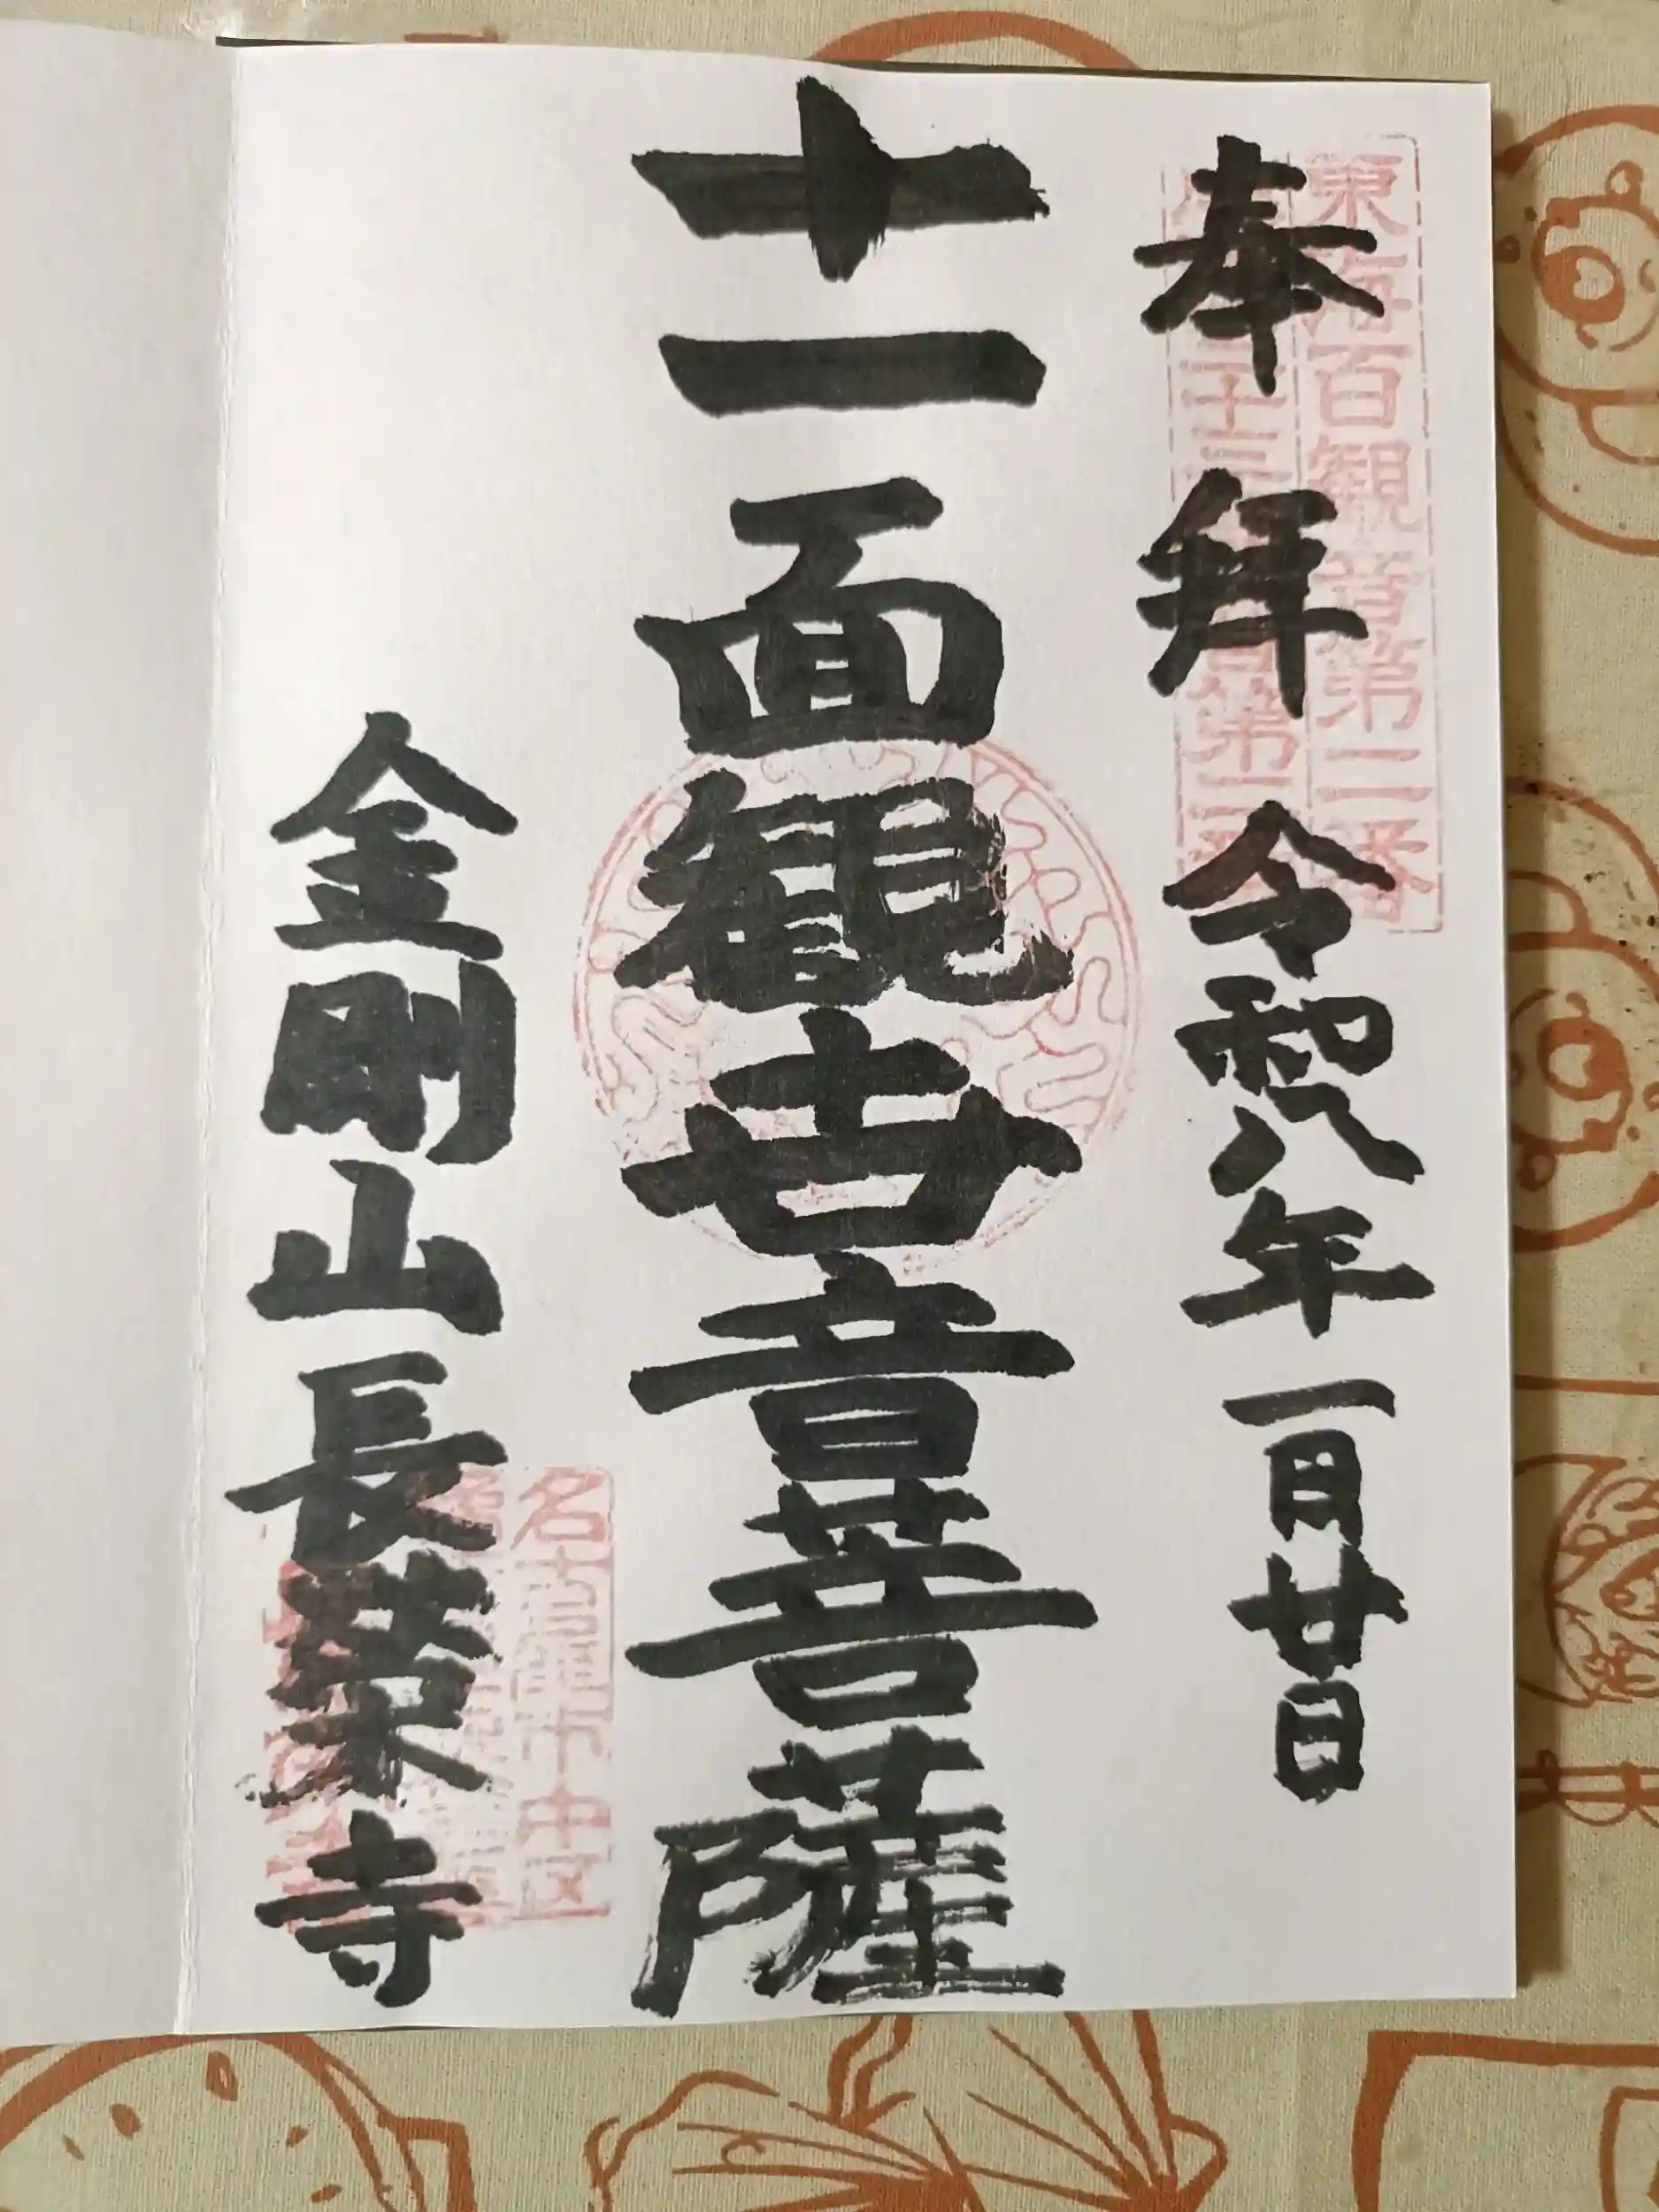 東海百観音第二番
奉拝 令和八年一月廿日
十一面観世音菩薩
金剛山長榮寺
名古屋市中区